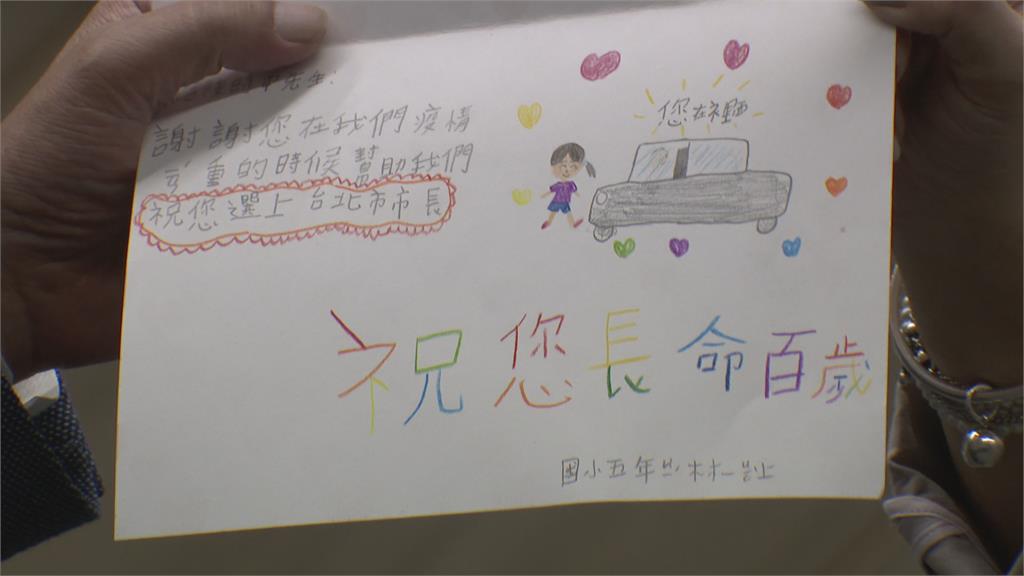 先生:
謝謝您在我們疫情
嚴重的時候幫助我們
祝您選上台北市市長
您在裡面
祝您長命百歲
國小五年